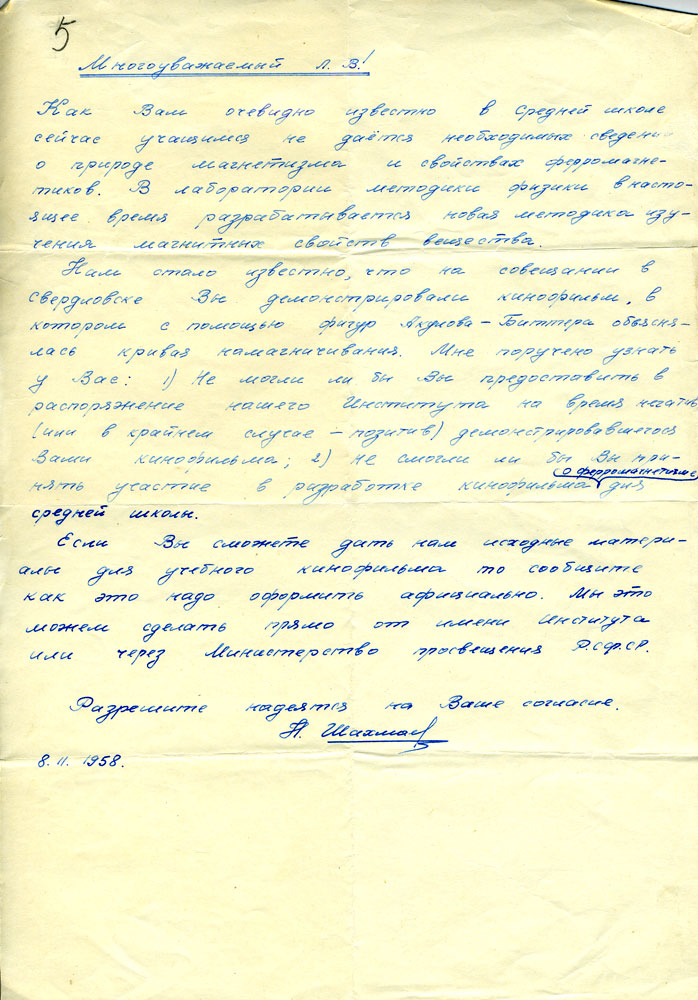 5
Многоуважаемый Л. В.!
Как Вам очевидно известно в средней школе
сейчас учащимся не даётся необходимых сведени
о природе магнетизма и свойствах ферромагне-
тиков. В лаборатории методики физики в насто-
ящее время разрабатывается новая методика изу-
чения магнитных свойств вещества.
Нам стало известно, что на совещании в
Свердловске Вы демонстрировали кинофильм, в
котором с помощью фигур Акулова-Биттера объясня-
лась кривая намагничивания. Мне поручено узнать
у Вас: 1) Не могли ли бы Вы предоставить в
распоряжение нашего Института на время негатив
(или в крайнем случае - позитив) демонстрировавшегося
Вами кинофильма; 2) не смогли ли бы Вы при-
нять участие в разработке кинофильма о ферромагнетизме для
средней школы.
Если Вы сможете дать нам исходные матери-
алы для учебного кинофильма то сообщите
как это надо оформить официально. Мы это
можем сделать прямо от имени Института
или через Министерство просвещения РСФСР.
Разрешите надеятся на Ваше согласие.
Н. Шахмаев
8. II. 1958.